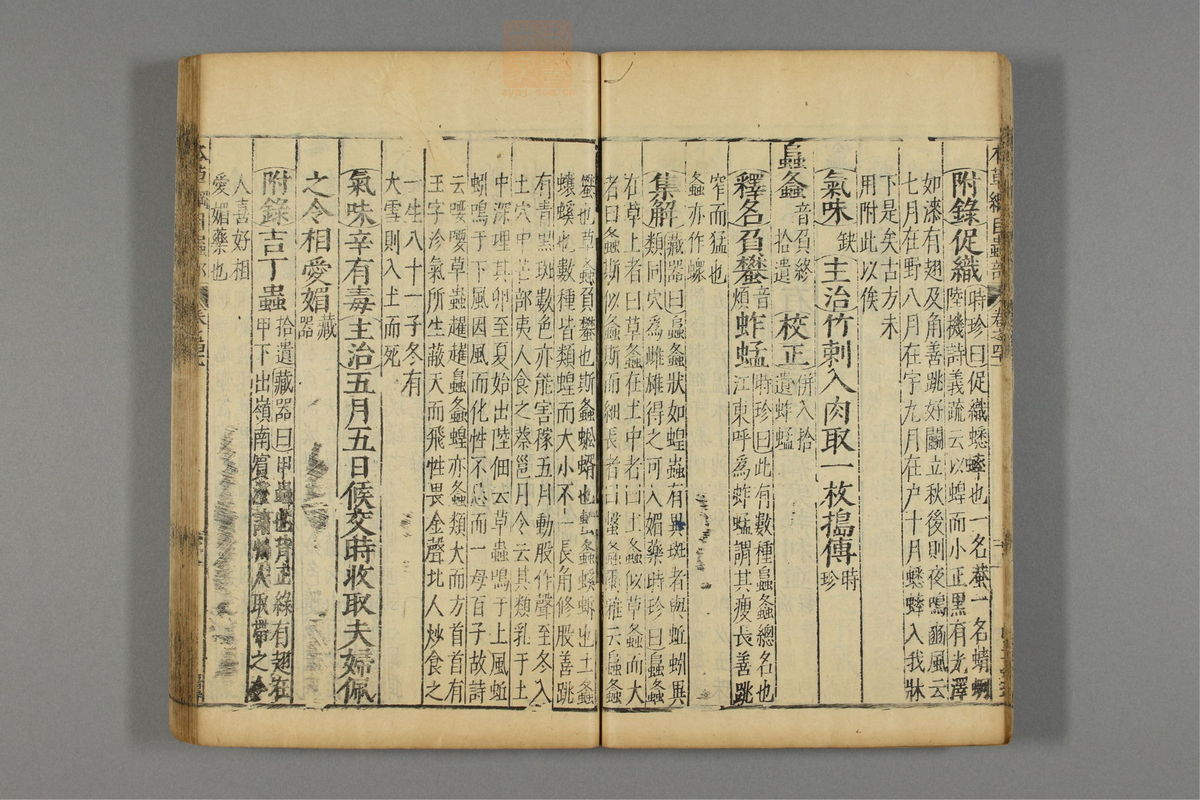 附錄促織
時珍曰促織蟋蟀也一名蛬一名蜻蛚
陸機詩義疏云以蝗而小正黑有光澤
如漆有翅及角善跳好鬭立秋後則夜鳴豳風云
七月在野八月在宇九月在户十月蟋蟀入我牀
下是矣古方未
用附此以俟
氣味缺主治竹刺入肉取一枚搗傅時珍
蟲螽音負終拾遺校正併入拾遺蚱蜢
釋名負蠜音煩蚱蜢
時珍曰此有數種蟲螽總名也
江東呼爲蚱蜢謂其瘦長善跳
窄而猛也
螽亦作
集解
藏器曰蟲螽狀如蝗蟲有異斑者與蚯蚓異
類同穴爲雌雄得之可入媚藥時珍曰蟲螽
在草上者曰草螽在土中者曰土螽似草螽而大
者曰螽斯似螽斯而細長者曰蟿螽爾雅云蟲螽
蠜也草螽負蠜也斯螽蜙蝑也蟿螽螇蚸也土螽
蠰螇也數種皆類蝗而大小不一長角修股善跳
有青黑斑數色亦能害稼五月動股作聲至冬入
土穴中芒部夷人食之蔡邕月令云其類乳于土
中深埋其卵至夏始出陸佃云草蟲鳴于上風蚯
蚓鳴于下風因風而化性不忌而一母百子故詩
云喓喓草蟲趯趯蟲螽蝗亦螽類大而方首首有
王字沴氣所生蔽天而飛性畏金聲北人炒食之
一生八十一子冬有
大雪則入土而死
氣味辛有毒主治五月五日候交時收取夫婦佩
之令相愛媚藏器
附錄吉丁蟲
拾遺藏器曰甲蟲也背正綠有翅在
甲下出嶺南賓澄諸州人取帶之令
人喜好相
愛媚藥也